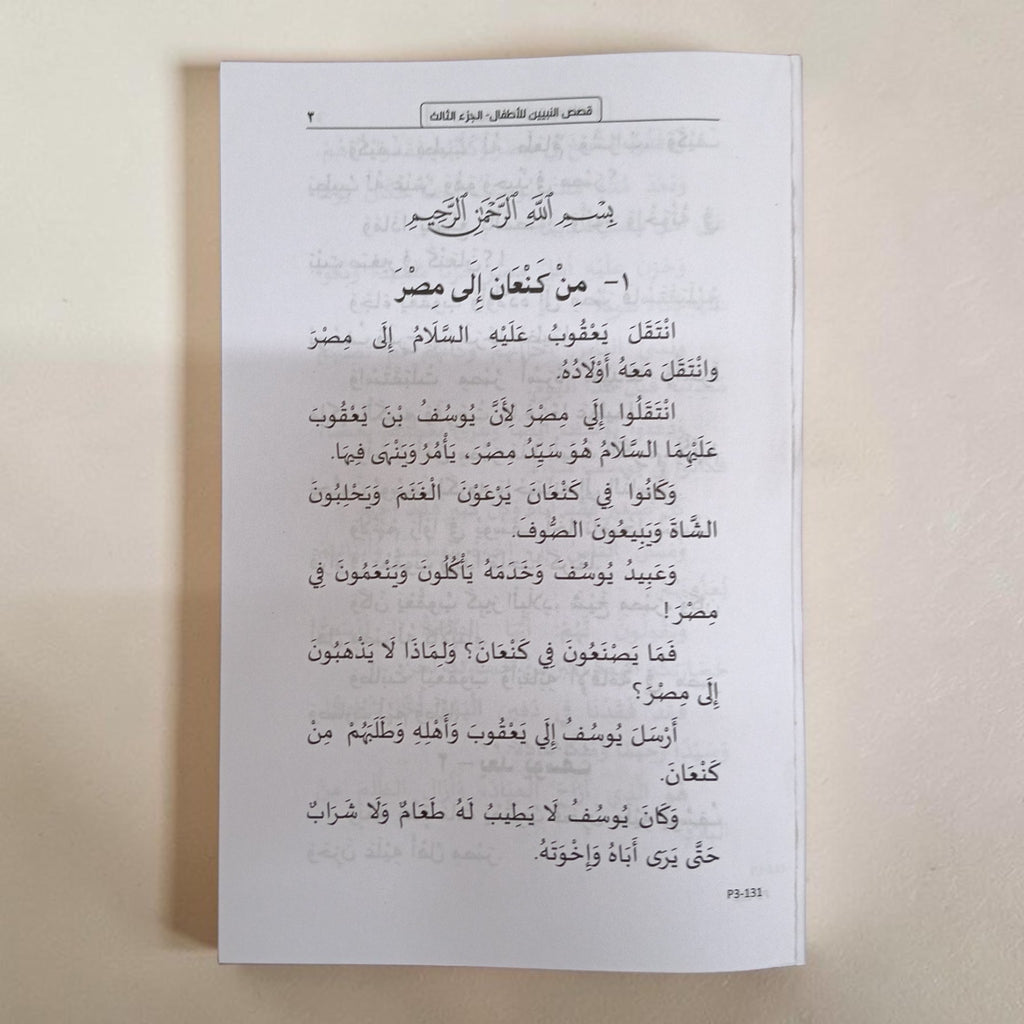 قصص النبيين للأطفال- الجزء الثالث
٣
بِسْمِ ٱللَّهِ ٱلرَّحْمَٰنِ ٱلرَّحِيمِ
١- مِنْ كَنْعَانَ إِلَى مِصْرَ
انْتَقَلَ يَعْقُوبُ عَلَيْهِ السَّلَامُ إِلَى مِصْرَ
وانْتَقَلَ مَعَهُ أَوْلَادُهُ.
انْتَقَلُوا إِلَي مِصْرَ لِأَنَّ يُوسُفُ بْنَ يَعْقُوبَ
عَلَيْهِمَا السَّلَامُ هُوَ سَيِّدُ مِصْرَ، يَأْمُرُ وَيَنْهَى فِيهَا.
وَكَانُوا فِي كَنْعَانَ يَرْعَوْنَ الْغَنَمَ وَيَحْلِبُونَ
الشَّاةَ وَيَبِيعُونَ الصُّوفَ.
وَعَبِيدُ يُوسُفَ وَخَدَمَهُ يَأْكُلُونَ وَيَنْعَمُونَ فِي
مِصْرَ!
فَمَا يَصْنَعُونَ فِي كَنْعَانَ؟ وَلِمَاذَا لَا يَذْهَبُونَ
إِلَى مِصْرَ؟
أَرْسَلَ يُوسُفُ إِلَي يَعْقُوبَ وَأَهْلِهِ وَطَلَبَهُمْ مِنْ
كَنْعَانَ.
وَكَانَ يُوسُفُ لَا يَطِيبُ لَهُ طَعَامٌ وَلَا شَرَابٌ
حَتَّى يَرَى أَبَاهُ وَإِخْوَتَهُ.
P3-131